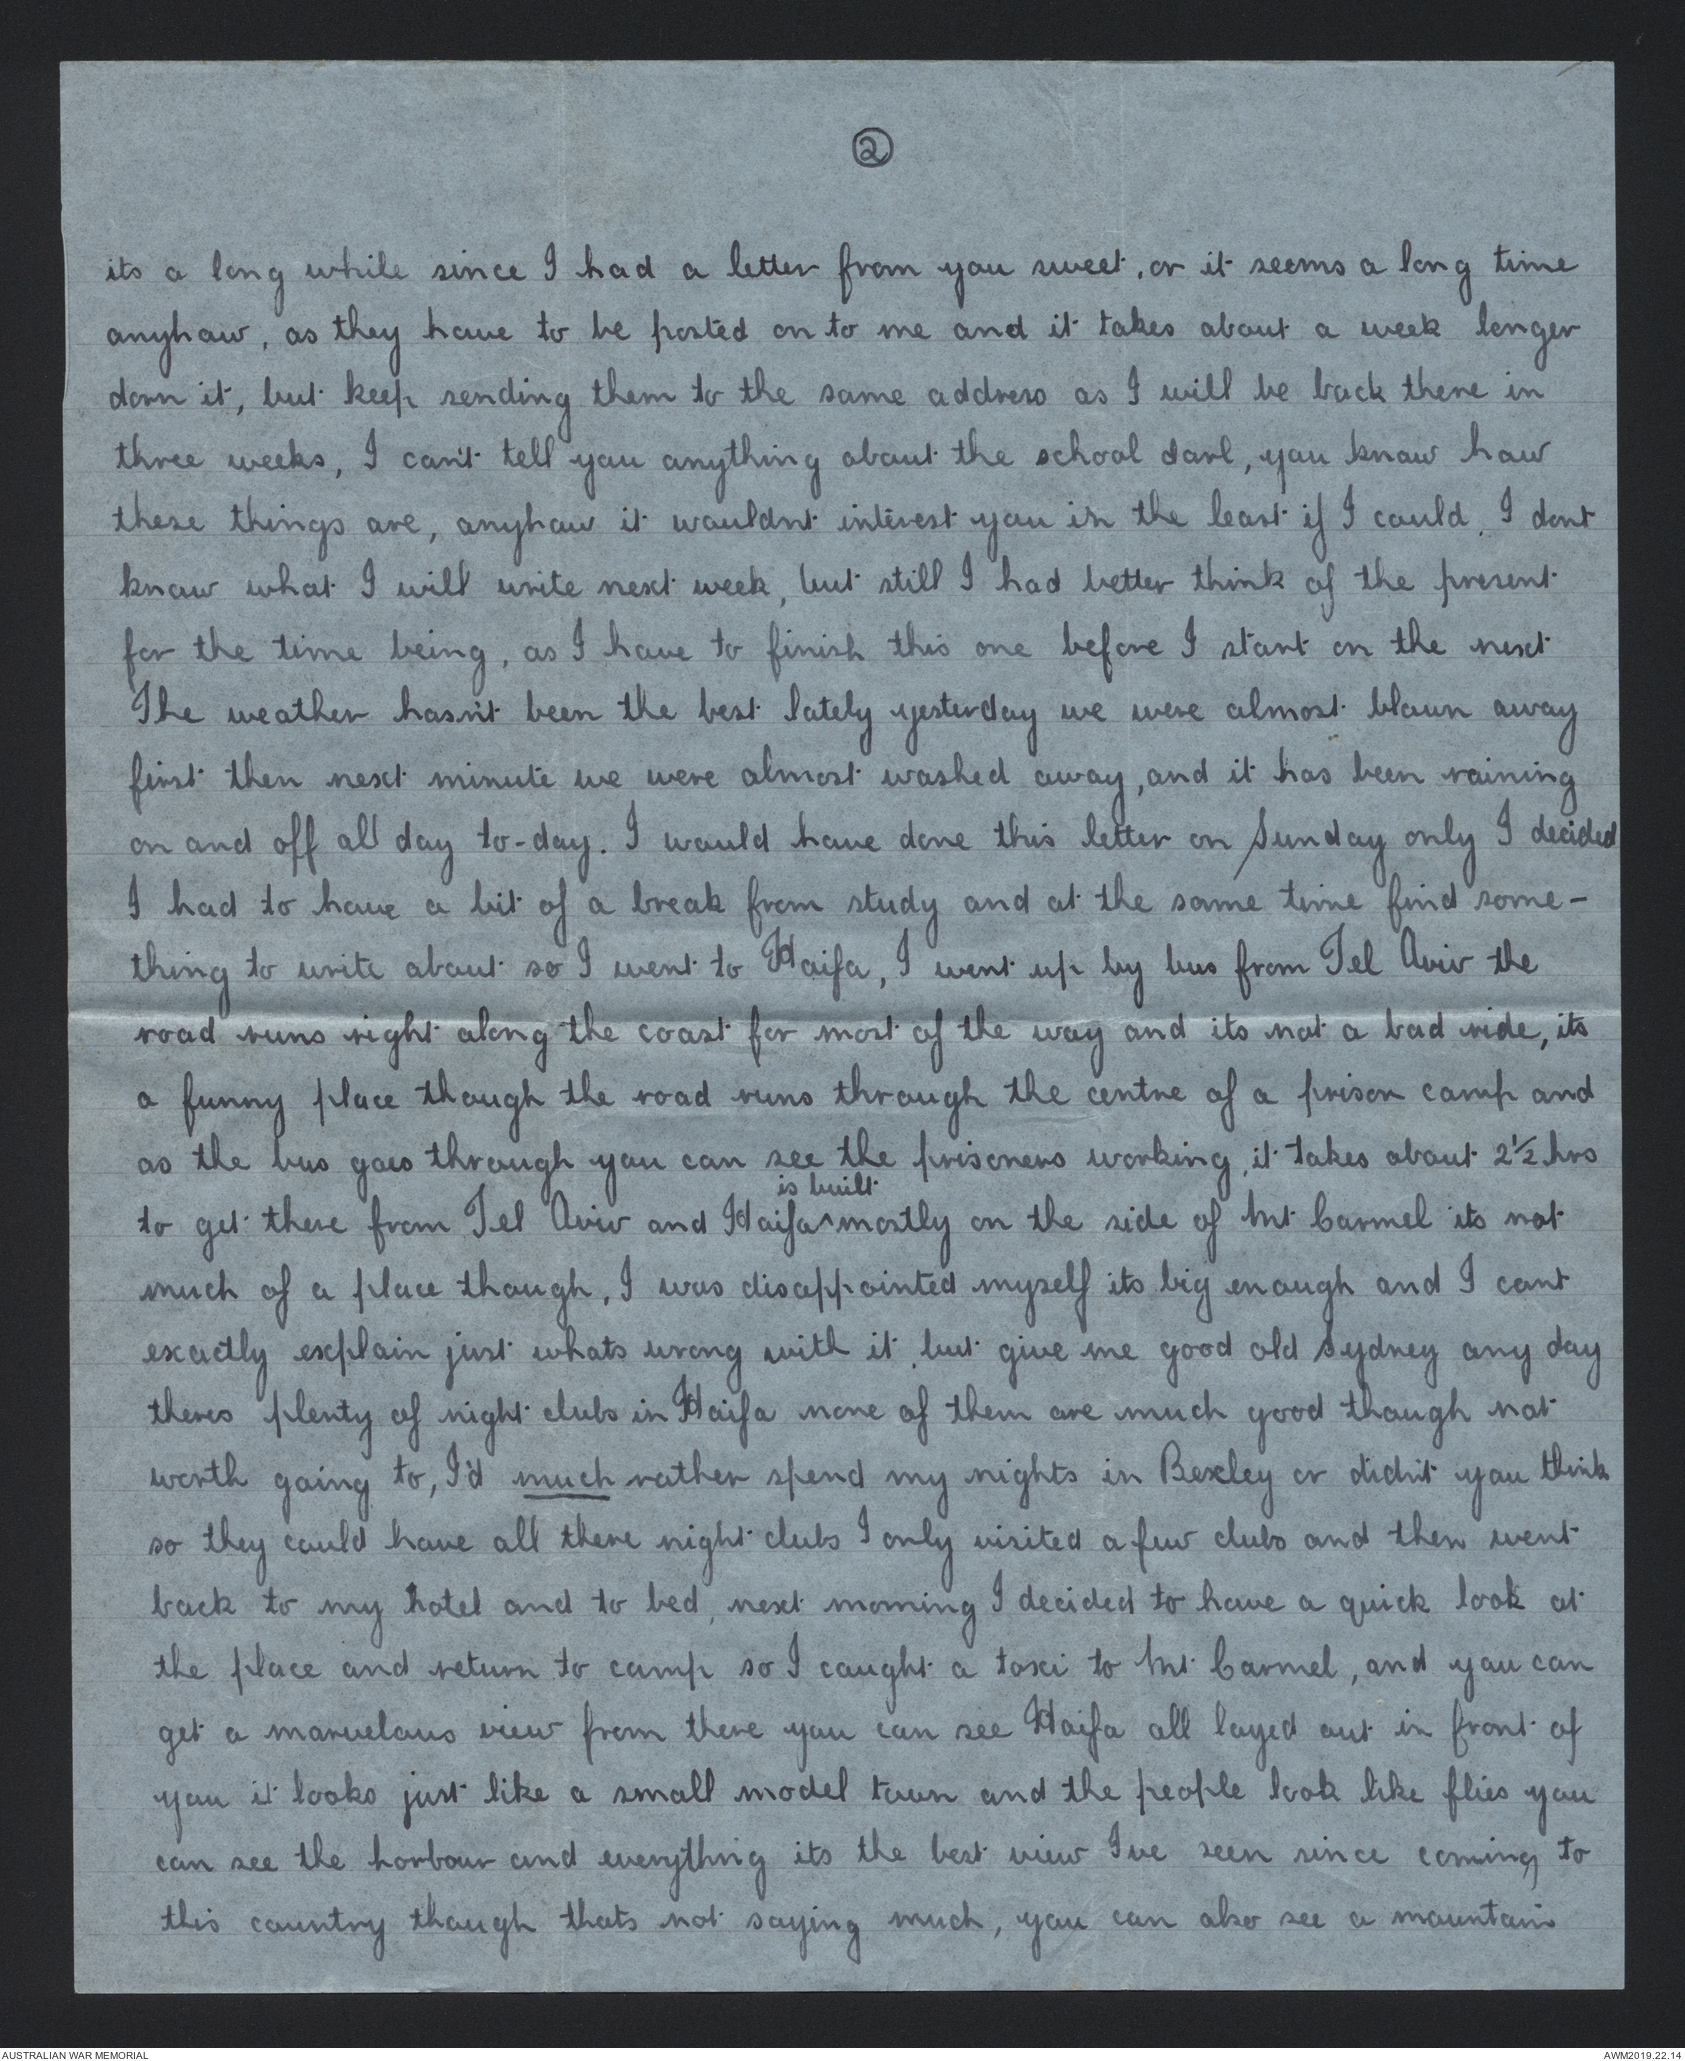 ②
its a long while since I had a letter from you sweet, or it seems a long time
anyhow, as they have to be posted on to me and it takes about a week longer
darn it, but keep sending them to the same address as I will be back there in
three weeks, I can't tell you anything about the school darl, you know how
these things are, anyhow it wouldnt interest you in the least if I could, I dont
know what I will write next week, but still I had better think of the present
for the time being, as I have to finish this one before I start on the next
The weather hasn't been the best lately yesterday we were almost blown away
first then next minute we were almost washed away, and it has been raining
on and off all day to-day. I would have done this letter on Sunday only I decided
I had to have a bit of a break from study and at the same time find some-
thing to write about so I went to Haifa, I went up by bus from Tel Aviv the
road runs right along the coast for most of the way and its not a bad ride, its
a funny place though the road runs through the centre of a prison camp and
as the bus goes through you can see the prisoners working, it takes about 2½ hrs
is built
to get there from Tel Aviv and Haifa ^ mostly on the side of Mt Carmel its not
much of a place though, I was disappointed myself its big enough and I cant
exactly explain just whats wrong with it, but give me good old Sydney any day
theres plenty of night clubs in Haifa none of them are much good though not
worth going to, I'd much rather spend my nights in Bexley or didn't you think
so they could have all there night clubs I only visited a few clubs and then went
back to my hotel and to bed, next morning I decided to have a quick look at
the place and return to camp so I caught a taxi to Mt Carmel, and you can
get a marvelous view from there you can see Haifa all layed out in front of
you it looks just like a small model town and the people look like flies you
can see the harbour and everything its the best view I've seen since coming to
this country though thats not saying much, you can also see a mountain
AUSTRALIAN WAR MEMORIAL
AWM2019.22.14